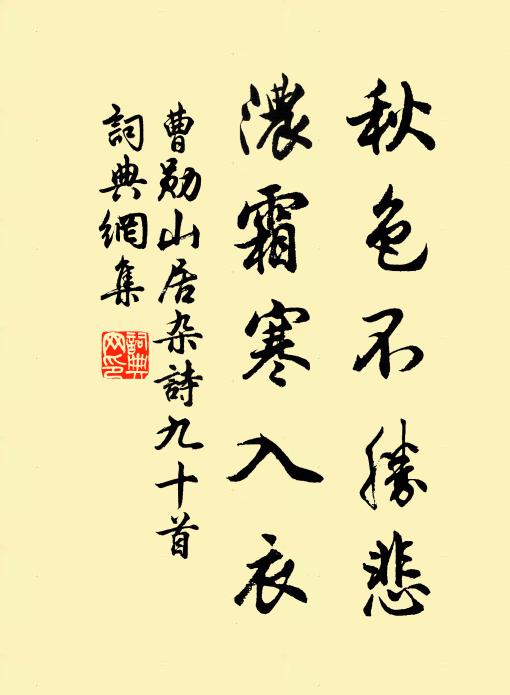 秋色不勝悲
濃霜寒入衣
曹勛山居杂詩九十首
詞典網集
詞典
网印